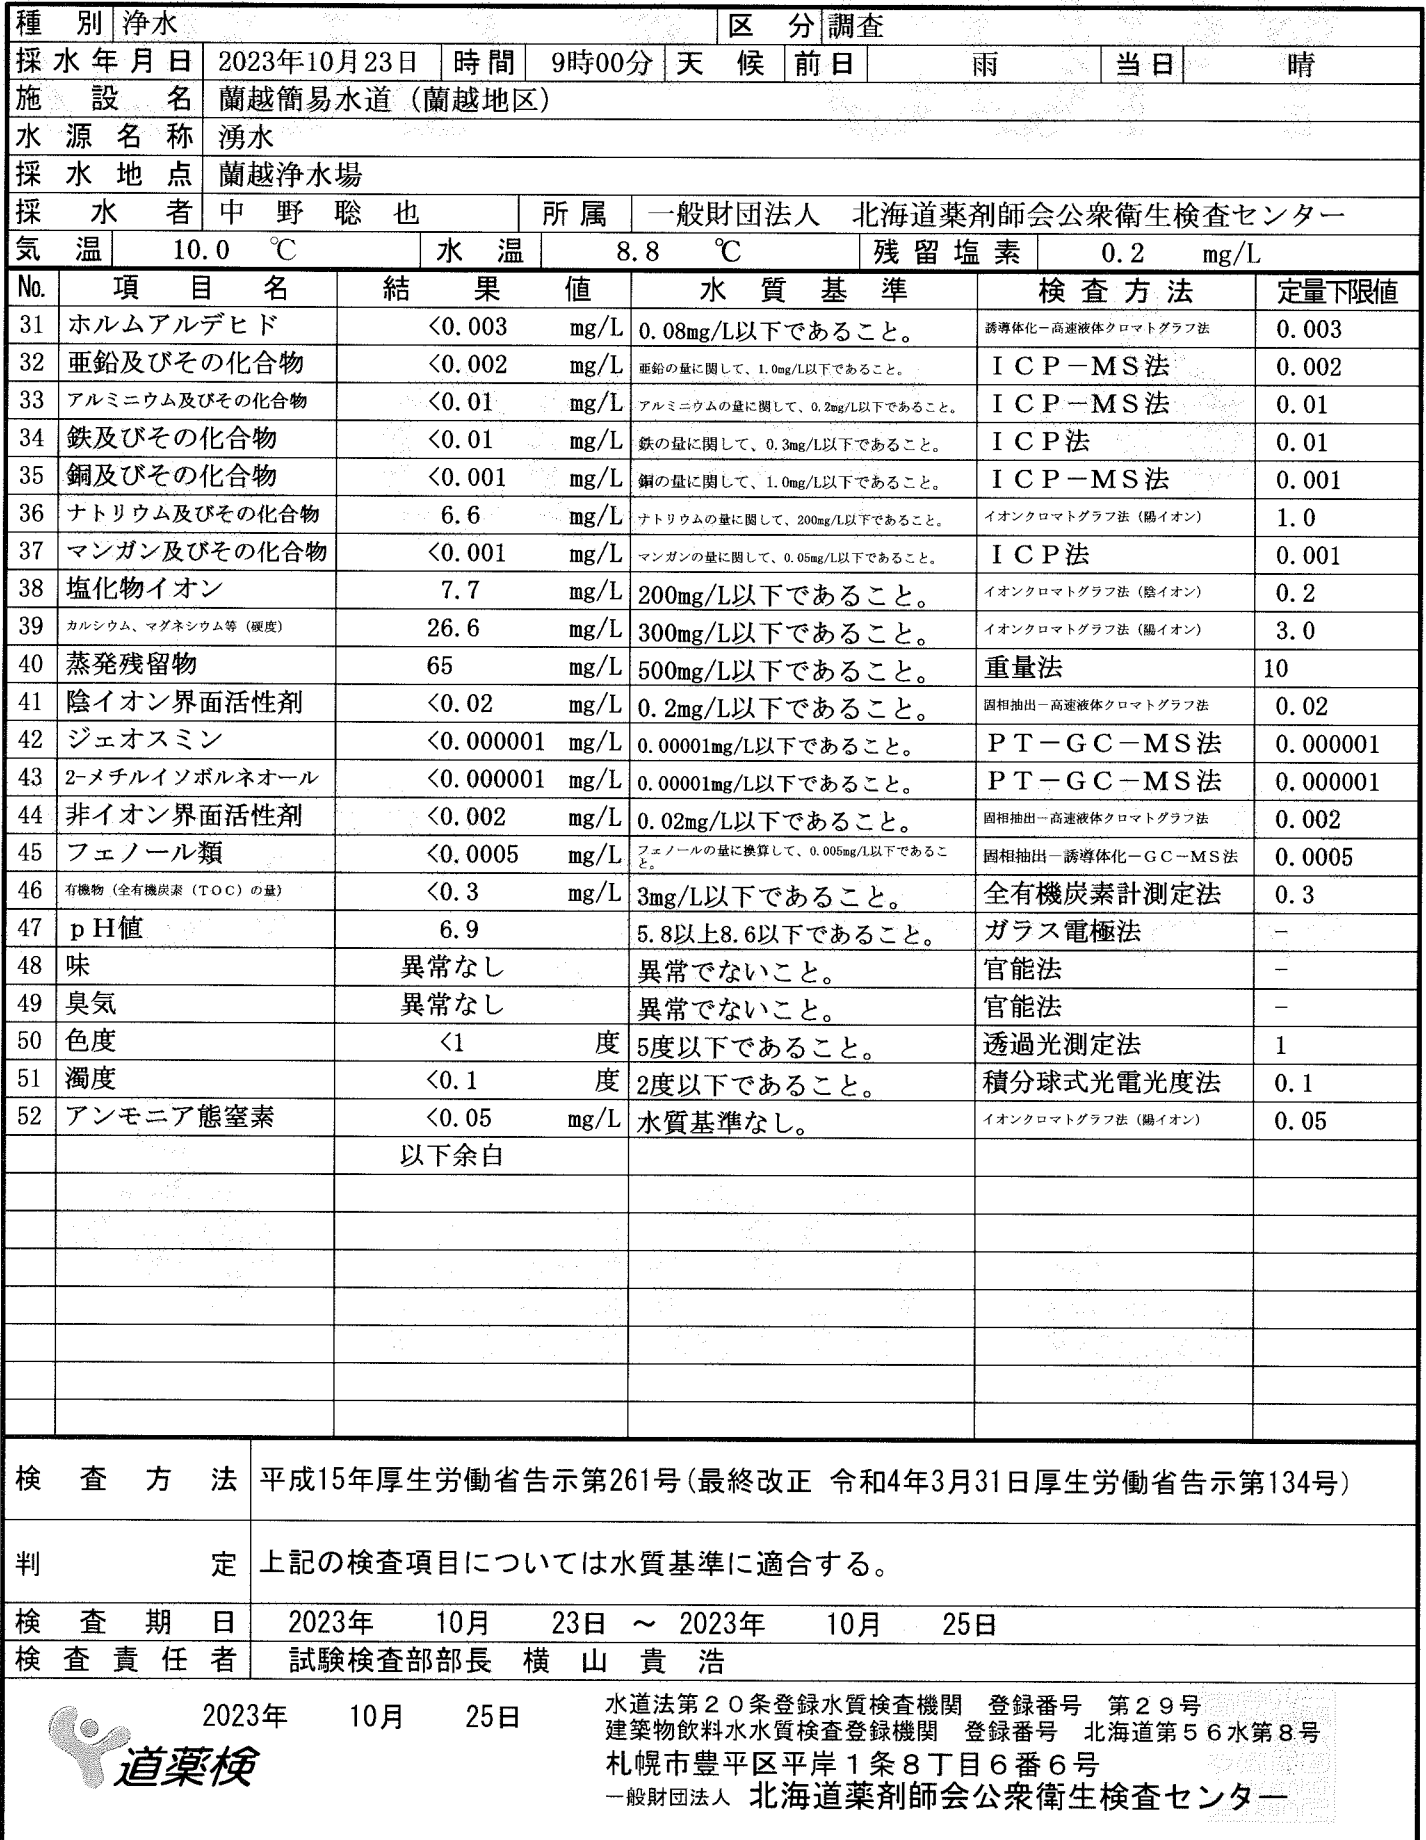 種別 浄水 区分 調査
採水年月日 2023年10月23日 時間 9時00分 天候 前日 雨 当日 晴
施設名 蘭越簡易水道（蘭越地区）
水源名称 湧水
採水地点 蘭越浄水場
採水者 中野聡也 所属 一般財団法人 北海道薬剤師会公衆衛生検査センター
気温 10.0 ℃ 水温 8.8 ℃ 残留塩素 0.2 mg/L
No. 項目名 結果値 水質基準 検査方法 定量下限値
31 ホルムアルデヒド <0.003 mg/L 0.08mg/L以下であること。 誘導体化－高速液体クロマトグラフ法 0.003
32 亜鉛及びその化合物 <0.002 mg/L 亜鉛の量に関して、1.0mg/L以下であること。 ＩＣＰ－ＭＳ法 0.002
33 アルミニウム及びその化合物 <0.01 mg/L アルミニウムの量に関して、0.2mg/L以下であること。 ＩＣＰ－ＭＳ法 0.01
34 鉄及びその化合物 <0.01 mg/L 鉄の量に関して、0.3mg/L以下であること。 ＩＣＰ法 0.01
35 銅及びその化合物 <0.001 mg/L 銅の量に関して、1.0mg/L以下であること。 ＩＣＰ－ＭＳ法 0.001
36 ナトリウム及びその化合物 6.6 mg/L ナトリウムの量に関して、200mg/L以下であること。 イオンクロマトグラフ法（陽イオン） 1.0
37 マンガン及びその化合物 <0.001 mg/L マンガンの量に関して、0.05mg/L以下であること。 ＩＣＰ法 0.001
38 塩化物イオン 7.7 mg/L 200mg/L以下であること。 イオンクロマトグラフ法（陰イオン） 0.2
39 カルシウム、マグネシウム等（硬度） 26.6 mg/L 300mg/L以下であること。 イオンクロマトグラフ法（陽イオン） 3.0
40 蒸発残留物 65 mg/L 500mg/L以下であること。 重量法 10
41 陰イオン界面活性剤 <0.02 mg/L 0.2mg/L以下であること。 固相抽出－高速液体クロマトグラフ法 0.02
42 ジェオスミン <0.000001 mg/L 0.00001mg/L以下であること。 ＰＴ－ＧＣ－ＭＳ法 0.000001
43 2-メチルイソボルネオール <0.000001 mg/L 0.00001mg/L以下であること。 ＰＴ－ＧＣ－ＭＳ法 0.000001
44 非イオン界面活性剤 <0.002 mg/L 0.02mg/L以下であること。 固相抽出－高速液体クロマトグラフ法 0.002
45 フェノール類 <0.0005 mg/L フェノールの量に換算して、0.005mg/L以下であること。 固相抽出－誘導体化－ＧＣ－ＭＳ法 0.0005
46 有機物（全有機炭素（ＴＯＣ）の量） <0.3 mg/L 3mg/L以下であること。 全有機炭素計測定法 0.3
47 ｐＨ値 6.9 5.8以上8.6以下であること。 ガラス電極法 －
48 味 異常なし 異常でないこと。 官能法 －
49 臭気 異常なし 異常でないこと。 官能法 －
50 色度 <1 度 5度以下であること。 透過光測定法 1
51 濁度 <0.1 度 2度以下であること。 積分球式光電光度法 0.1
52 アンモニア態窒素 <0.05 mg/L 水質基準なし。 イオンクロマトグラフ法（陽イオン） 0.05
以下余白
検査方法 平成15年厚生労働省告示第261号(最終改正 令和4年3月31日厚生労働省告示第134号)
判定 上記の検査項目については水質基準に適合する。
検査期日 2023年 10月 23日 ～ 2023年 10月 25日
検査責任者 試験検査部部長 横山貴浩
2023年 10月 25日
道薬検
水道法第２０条登録水質検査機関 登録番号 第２９号
建築物飲料水水質検査登録機関 登録番号 北海道第５６水第８号
札幌市豊平区平岸１条８丁目６番６号
一般財団法人 北海道薬剤師会公衆衛生検査センター